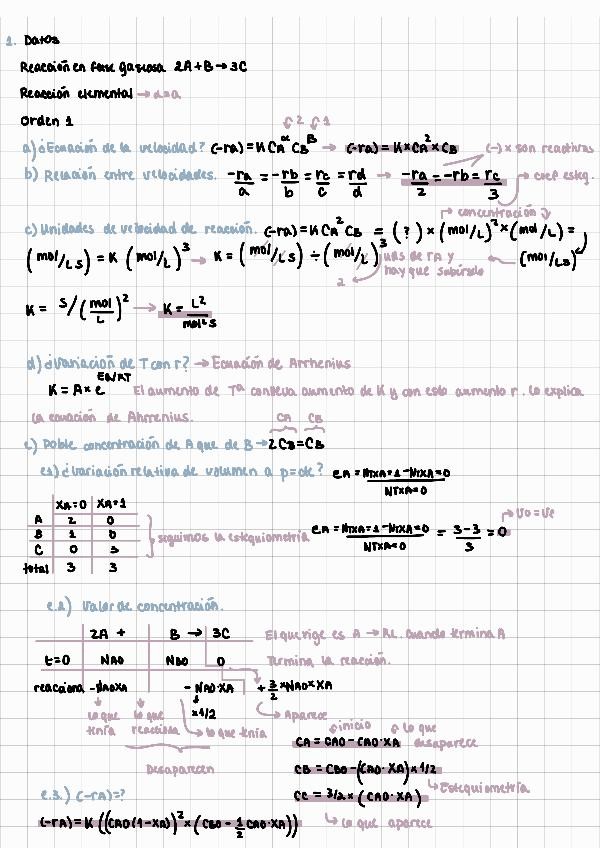 1. Datos
Reacción en fase gaseosa 2A + B → 3C
Reacción elemental → α=a
Orden 1
↻ 2 ↻ 1
a) ¿Ecuación de la velocidad? (-ra) = K CA^α CB^B → (-ra) = K × CA² × CB (-) × son reactivos
b) Relación entre velocidades. -ra/a = -rb/b = rc/c = rd/d → -ra/2 = -rb = rc/3 → coef estq.
→ concentración
c) Unidades de velocidad de reacción. (-ra) = K CA² CB = (?) × (mol/L)² × (mol/L) =
(mol/LS) = K (mol/L)³ → K = (mol/LS) ÷ (mol/L)³ uds de rA y (mol/LS)
2 hay que subirlo
K = S/(mol/L)² → K = L²/mol² S
d) ¿Variación de T con r? → Ecuación de Arrhenius
K = A × e^EA/RT El aumento de Tª conlleva aumento de K y con esto aumento r. Lo explica
la ecuación de Ahrrenius. CA CB
e) Doble concentración de A que de B → 2CB = CB
e1) ¿Variación relativa de volumen a p=cte? εA = NTXA=1 - NTXA=0 / NTXA=0
XA=0 XA=1
→ V0 = Ve
A 2 0
B 1 0
C 0 3
total 3 3
seguimos la estequiometría εA = NTXA=1 - NTXA=0 / NTXA=0 = 3-3/3 = 0
e.2) Valor de concentración.
2A + B → 3C El que rige es A → RL. Cuando termina A
t=0 NA0 NB0 0 Termina la reacción.
reacciona -NA0XA - NA0·XA + 3/2 × NA0 × XA
× 1/2
lo que tenía lo que reacciona → lo que tenía → Aparece
Desaparecen
inicio lo que
CA = CA0 - CA0·XA desaparece
CB = CB0 - (CA0·XA) × 1/2
→ Estequiometría
CC = 3/2 × (CA0·XA)
→ lo que aparece
e.3.) (-rA) = ?
(-rA) = K ((CA0(1-XA))² × (CB0 - 1/2 CA0·XA))